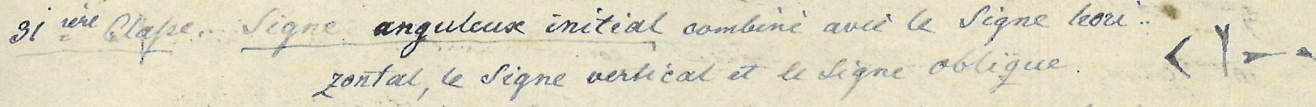 31 ième Classe. Signe anguleux initial combiné avec le Signe hori-
zontal, le Signe vertical et le Signe oblique.